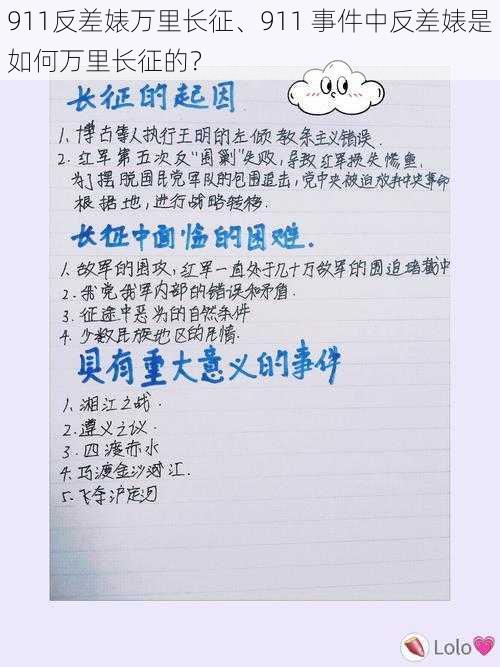 911反差婊万里长征、911 事件中反差婊是
如何万里长征的？
长征的起因
1、博古等人执行王明的左倾教条主义错误.
2. 红军第五次反“围剿”失败,导致红军损失惨重.
为了摆脱国民党军队的包围追击,党中央被迫放弃中央革命
根据地,进行战略转移.
长征中面临的困难.
1. 敌军的围攻,红军一直处于几十万敌军的围追堵截中
2. 我党我军内部的错误和矛盾.
3. 征途中恶劣的自然条件
4. 少数民族地区的民情.
具有重大意义的事件
1、湘江之战.
2. 遵义之议.
3. 四渡赤水
4. 巧渡金沙江.
5. 飞夺泸定河
Lolo